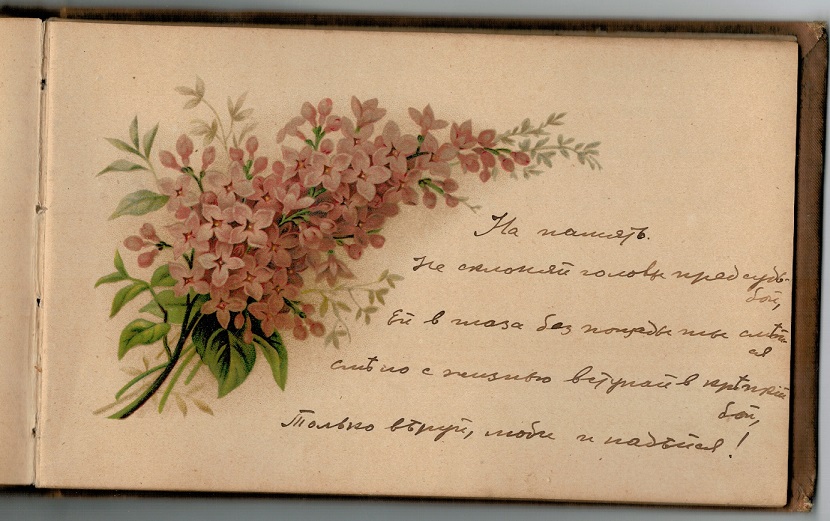 На память.
Не склоняй головы пред судь-
бой,
Ей в глаза без пощады ты смѣй-
ся
смѣло с жизнью вступай в крѣпкій
бой,
Только вѣруй, люби и надѣйся!